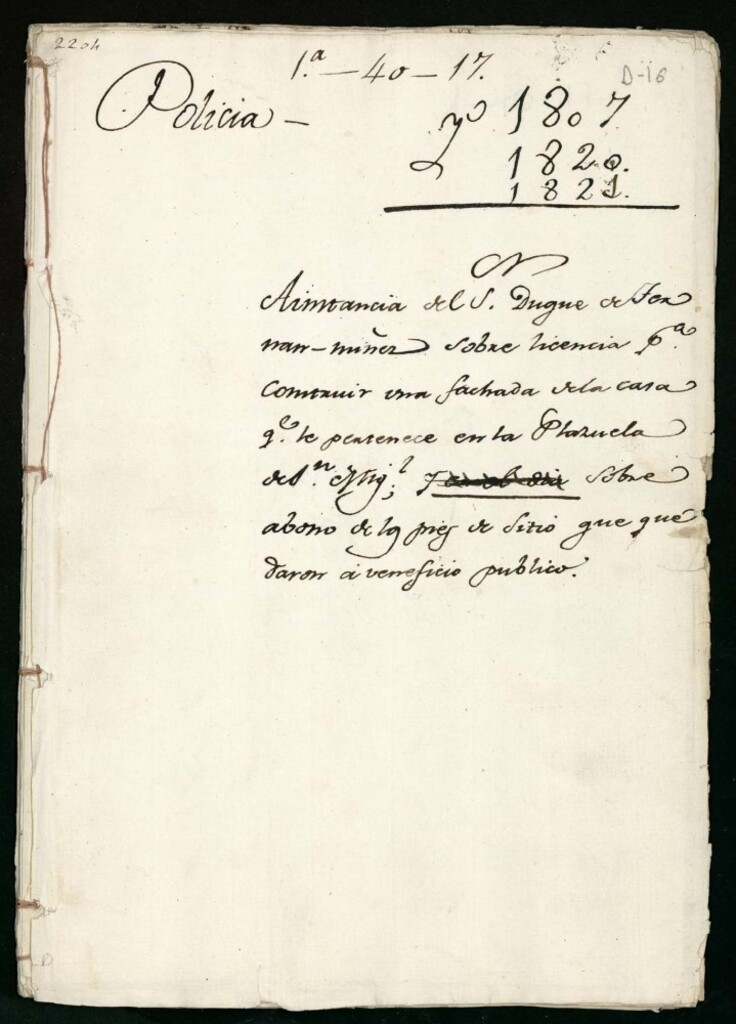 2204
1.ª — 40 — 17.
D-16
Policia —
y 1807
1820.
1821.
A instancia del S. Duque de Fer
nan-nuñez sobre licencia p.ª
Construir una fachada de la casa
q.e le pertenece en la Plazuela
de S.n Mig.l y sobre
abono de los pies de Sitio que que
daron à veneficio publico.